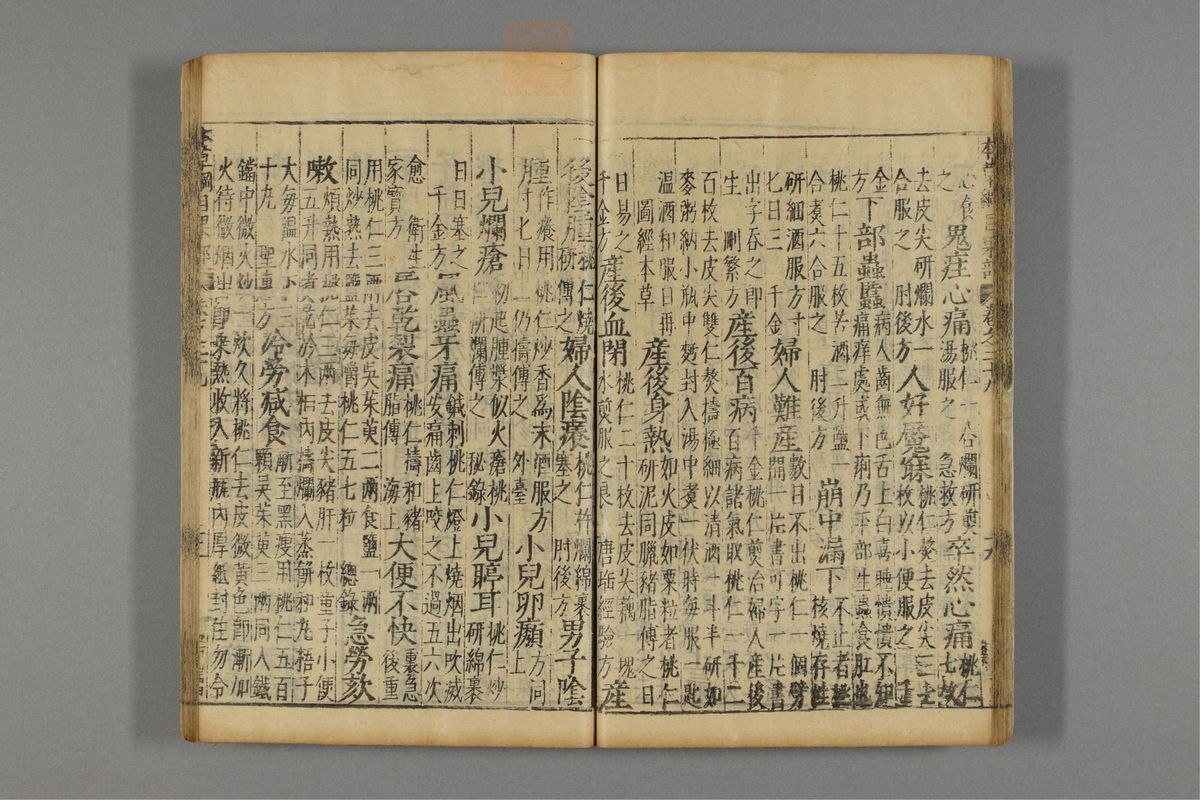 本草綱目果部 卷之二十九
鬼疰心痛 桃仁一合爛研煎湯服之 急救方 卒然心痛 桃仁七枚
去皮尖研爛水一合服之 肘後方 人好魘寐 桃仁熬去皮尖三七枚以小便服之 千
金方 下部蟲䘌 病人齒無色舌上白喜睡憒憒不知痛痒處或下痢乃下部生蟲食肛也
桃仁十五枚苦酒二升鹽一合煮六合服之 肘後方 崩中漏下 不止者桃核燒存性
研細酒服方寸匕日三 千金 婦人難產 數日不出桃仁一個劈開一片書可字一片書
出字吞之即生 刪繁方 產後百病 千金桃仁煎治婦人產後百病諸氣取桃仁一千二
百枚去皮尖雙仁熬擣極細以清酒一斗半研如麥粥納小瓶中麪封入湯中煮一伏時每服一匙
溫酒和服日再 圖經本草 產後身熱 如火皮如粟粒者桃仁研泥同臘豬脂傅之日
日易之 千金方 產後血閉 桃仁二十枚去皮尖藕一塊水煎服之良 唐瑤經驗方 產
後陰腫 桃仁燒研傅之 婦人陰癢 桃仁杵爛綿裹塞之 肘後方 男子陰
腫 作癢用桃仁炒香為末酒服方寸匕日二仍擣傅之 外臺 小兒卵㿗 方同上
小兒爛瘡 初起腫漿似火瘡桃仁研爛傅之 秘錄 小兒聤耳 桃仁炒研綿裹
日日塞之 千金方 風蟲牙痛 鍼刺桃仁燈上燒烟出吹滅安痛齒上咬之不過五六次
愈 衛生家寶方 唇乾裂痛 桃仁擣和豬脂傅 海上 大便不快 裏急後重
用桃仁三兩去皮吳茱萸二兩食鹽一兩同炒熟去鹽茱每嚼桃仁五七粒 總錄 急勞欬
嗽 煩熱用桃仁三兩去皮尖豬肝一枚童子小便五升同煮乾於木臼內擣爛入蒸餅和丸梧子
大每溫水下三十丸 聖惠方 冷勞減食 漸至黑瘦用桃仁五百顆吳茱萸三兩同入鐵
鐺中微火炒一炊久將桃仁去皮微黃色卽漸加火待微烟出卽乘熱收入新瓶內厚紙封住勿令
本草綱目果部 卷之二十九